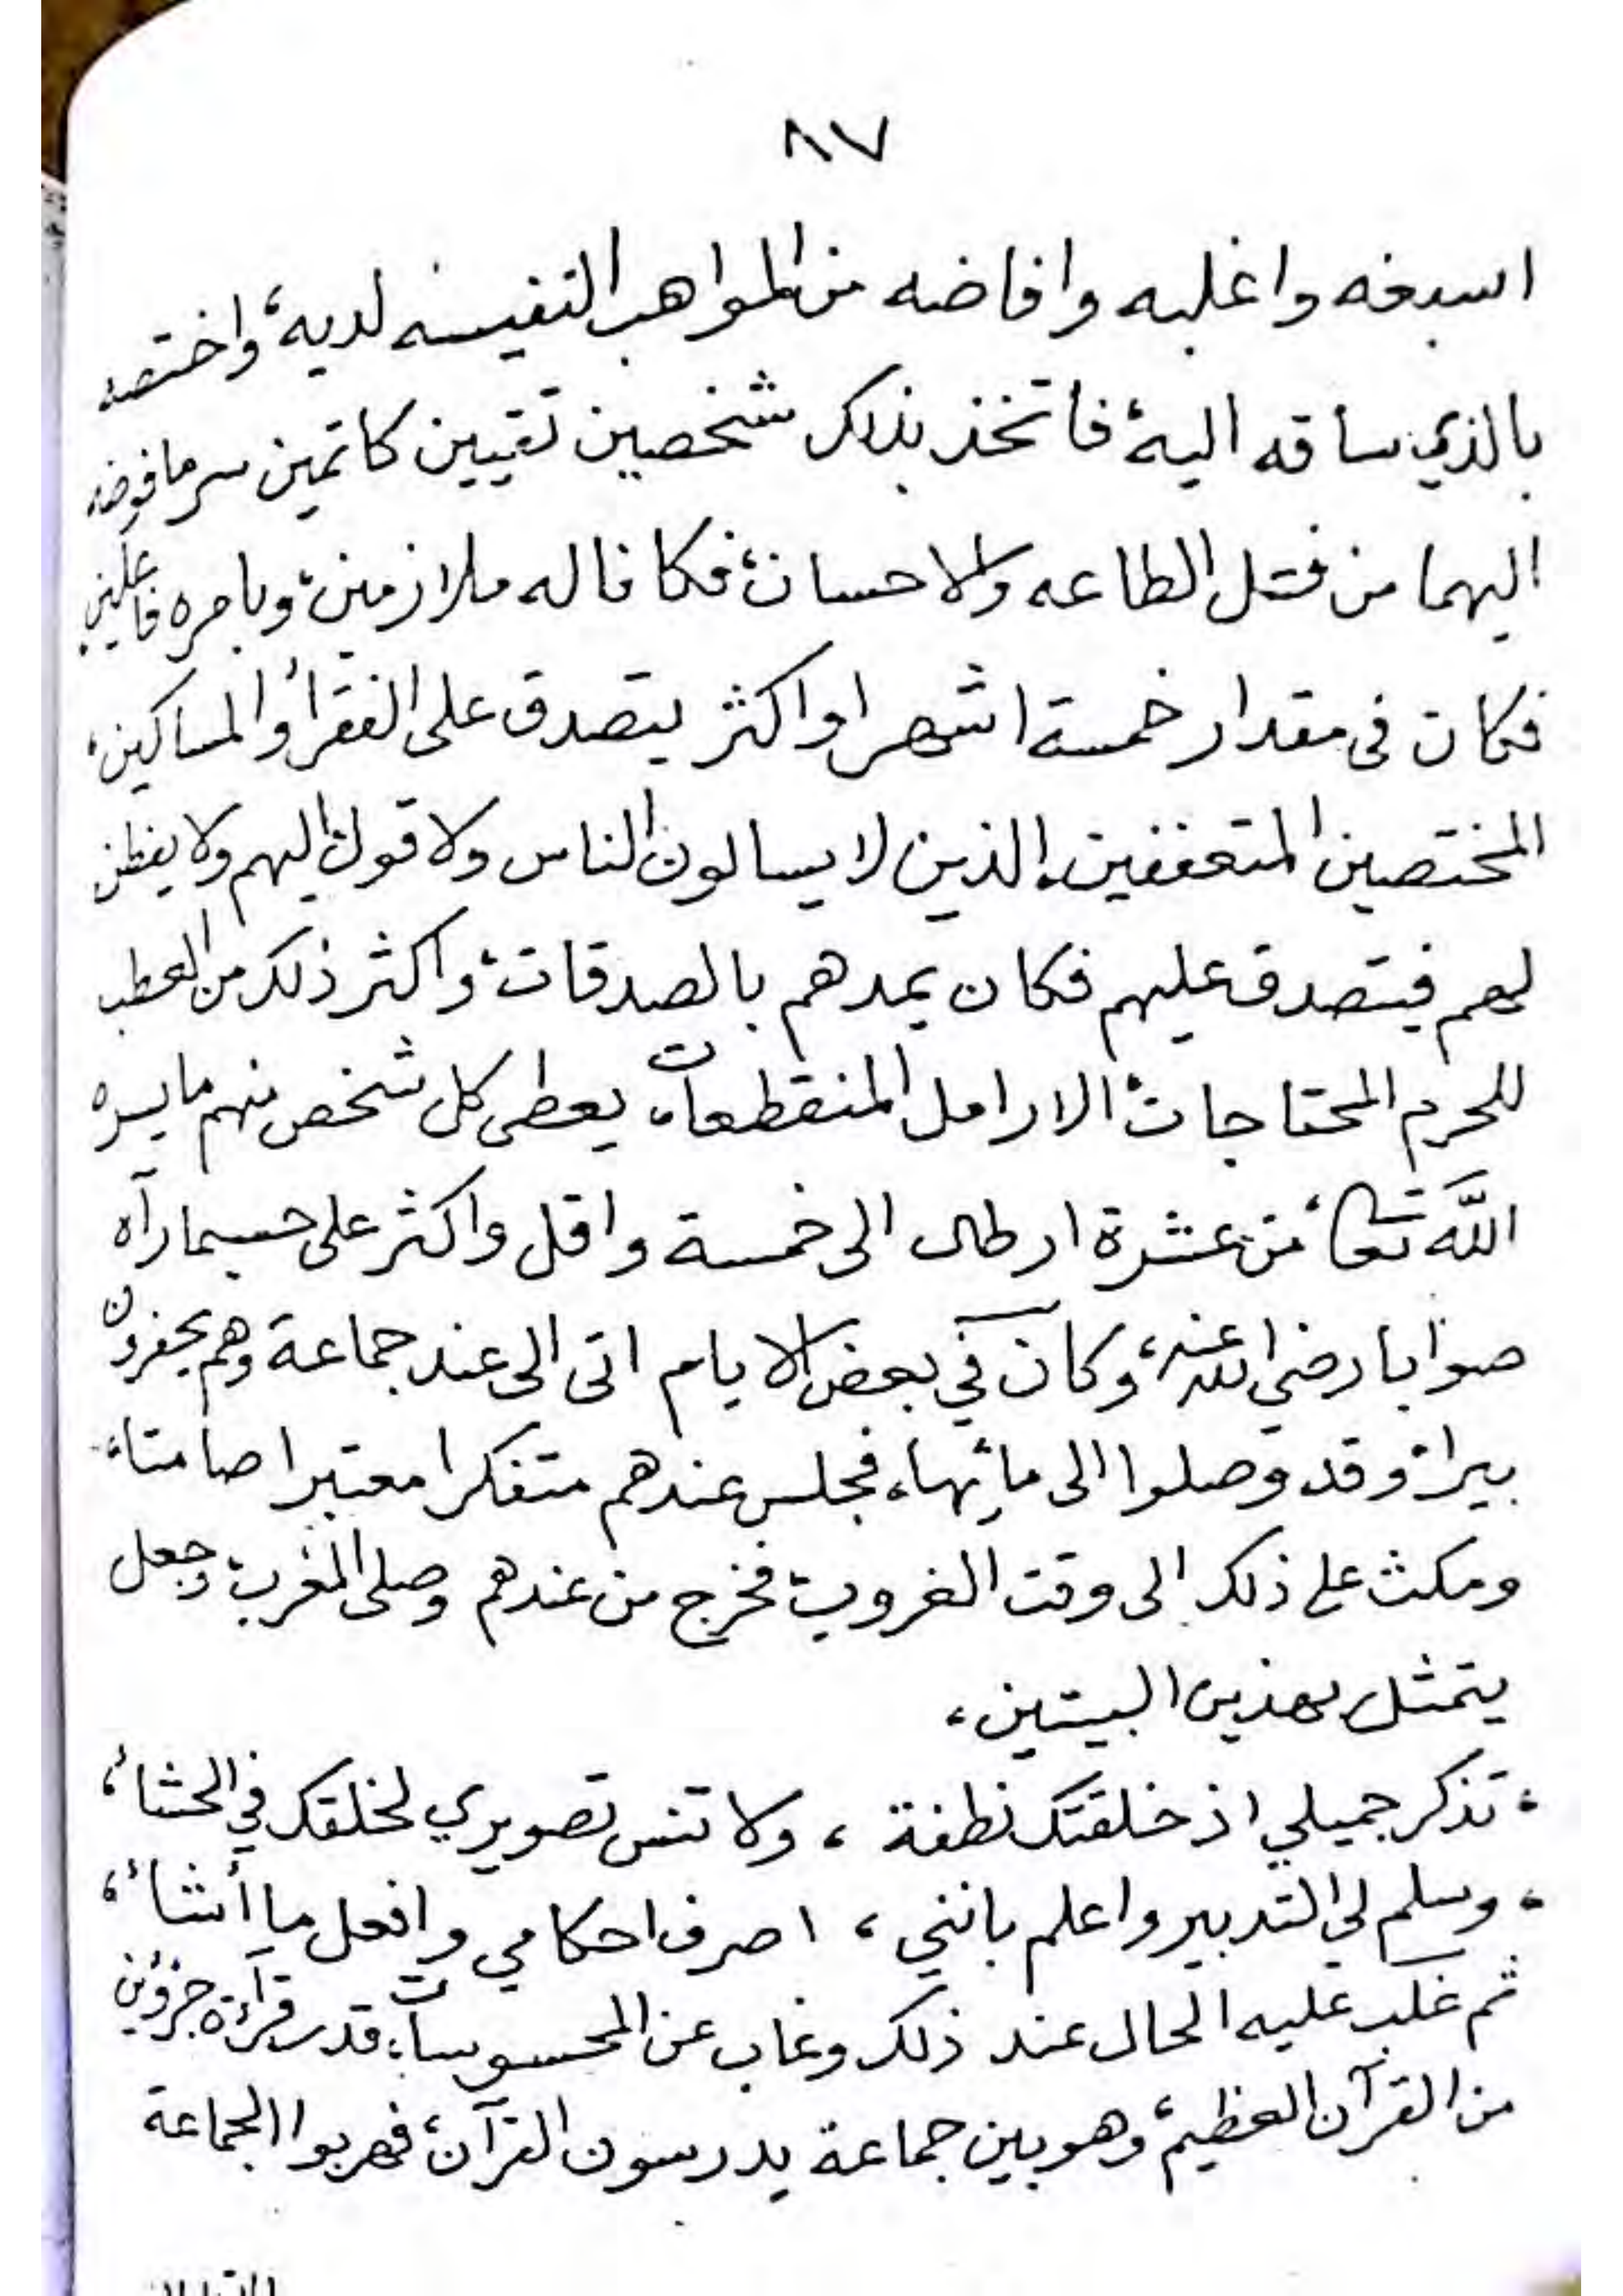 ٨٧
اسبغه واغلبه وافاضه من المواهب النفيسه لديه، واختصه
بالذي ساقه اليه، فاتخذ بذلك شخصين تقيين كاتمين سر ما فوضه
اليهما من فتل الطاعه والاحسان، فكانا له ملازمين، وبامره فاعلين
فكان فى مقدار خمسة اشهر او اكثر يتصدق على الفقرأ والمساكين،
المختصين المتعففين الذين لا يسالون الناس ولا قول اليهم ولا يفطن
لهم فيتصدق عليهم فكان يمدهم بالصدقات، واكثر ذلك من العطب
للحرم المحتاجات، الارامل المنقطعات، يعطى كل شخص منهم ما يسره
اللّه تعا، من عشرة ارطال الى خمسة واقل واكثر على حسبما رآه
صوابا رضي الله عنه، وكان في بعض الايام اتى الى عند جماعة وهم يحفرون
بيرا، وقد وصلوا الى مائها، فجلس عندهم متفكرا معتبرا صامتا،
ومكث على ذلك الى وقت الغروب فخرج من عندهم وصلى المغرب، وجعل
يتمثل بهذين البيتين،
، تذكر جميلي اذ خلقتك نطفة ، ولا تنس تصويري لخلقك في الحشاء،
، وسلم لي التدبير واعلم بانني ، اصرف احكامي وافعل ما أشاء،
ثم غلب عليه الحال عند ذلك وغاب عن المحسوسات، قدر قرآءة جزؤين
من القرآن العظيم، وهو بين جماعة يدرسون القرآن، فهربوا الجماعة